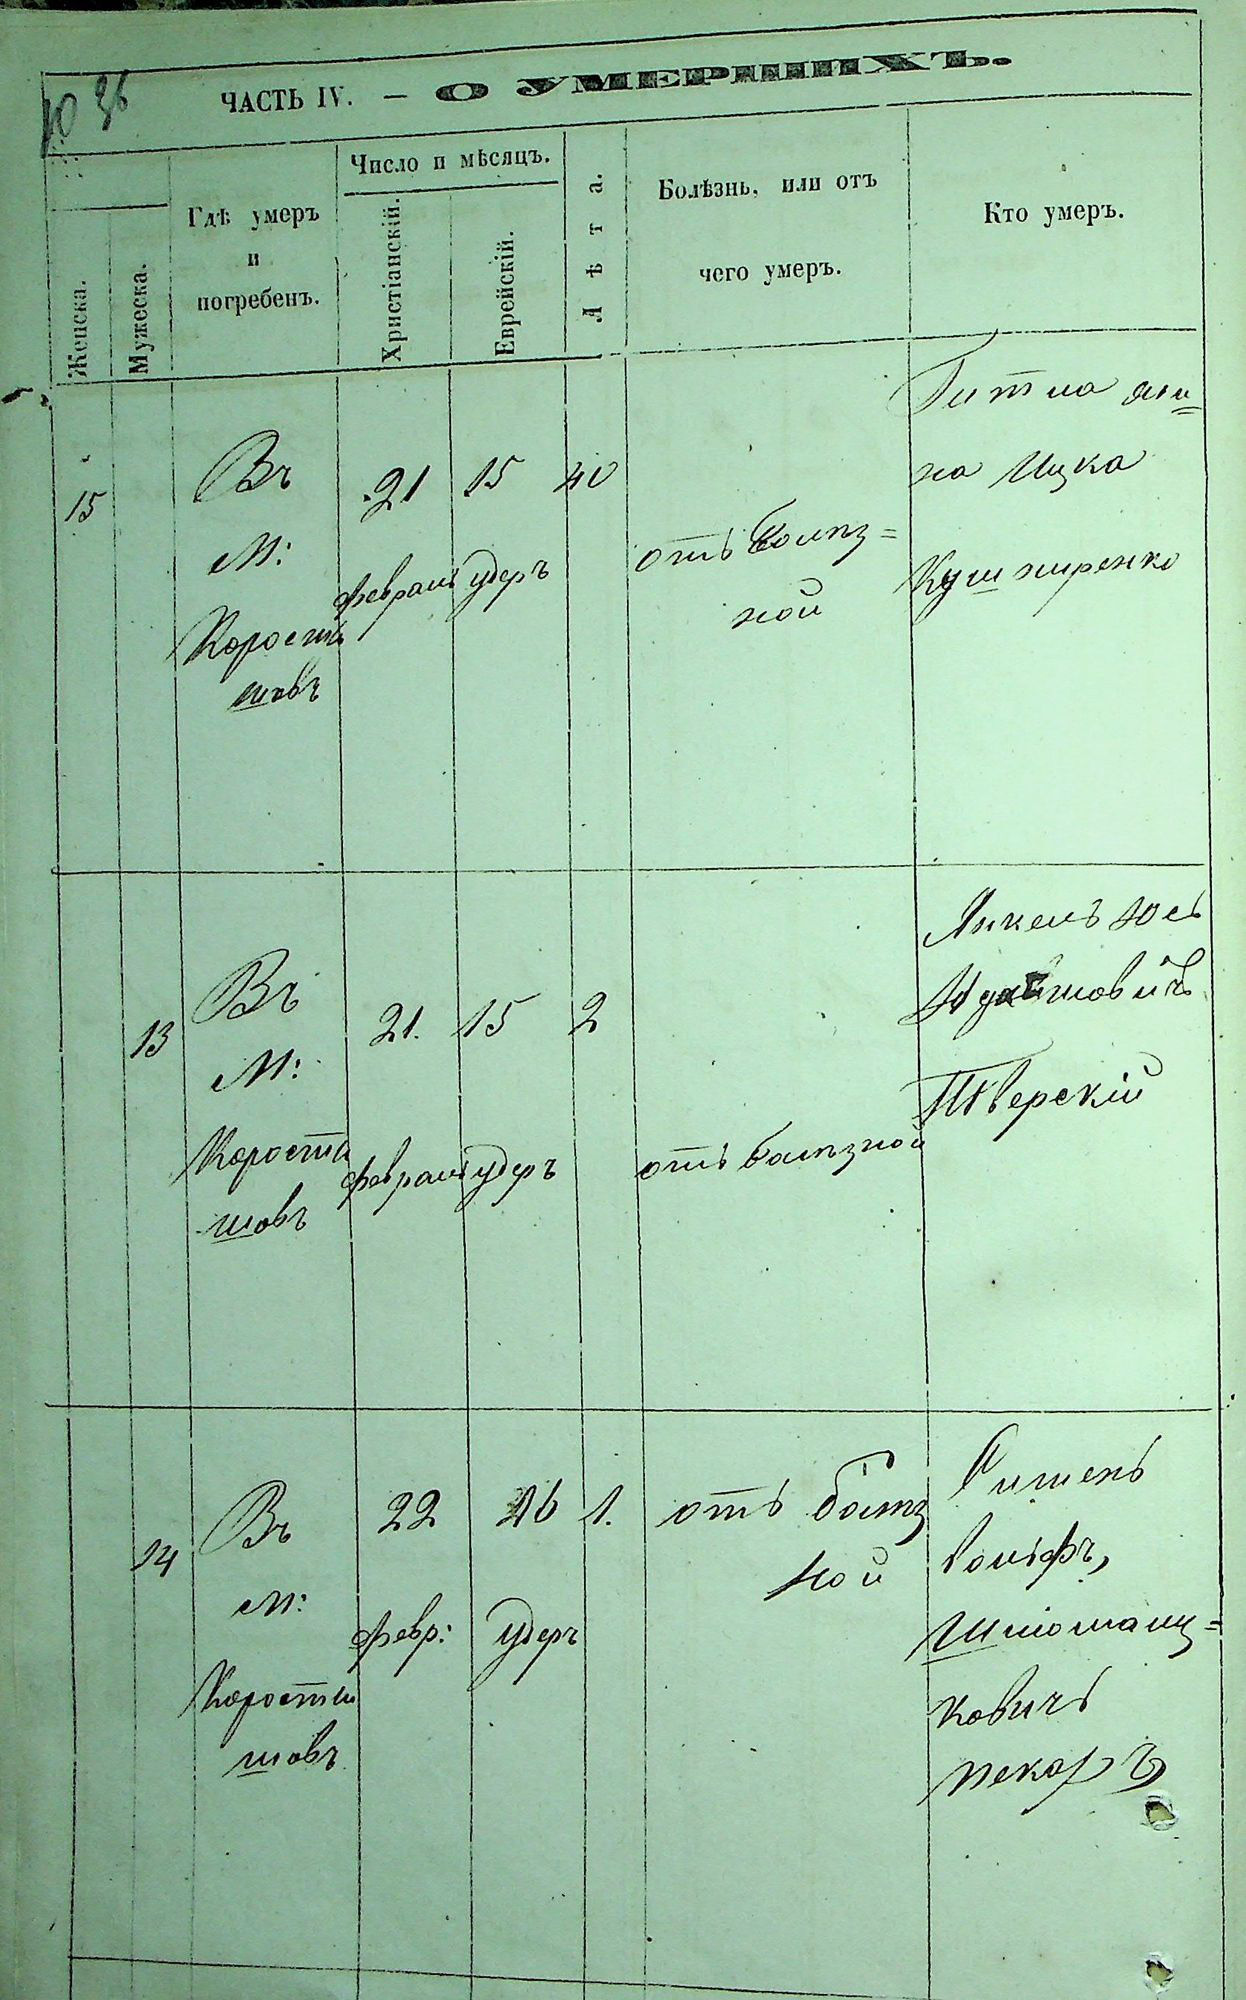 36
ЧАСТЬ IV. — О УМЕРШИХЪ.
Женска.
Мужеска.
Гдѣ умеръ
и
погребенъ.
Число и мѣсяцъ.
Христіанскій.
Еврейскій.
Лѣта.
Болѣзнь, или отъ
чего умеръ.
Кто умеръ.
15
Въ
М:
Корости
шовъ
21
февраль
15
удеръ
40
отъ болѣз=
ной
на Ицка
Кушниренко
13
Въ
М:
Корости
шовъ
21.
февраль
15
удеръ
2
отъ болѣзной
Янкель Юсь
Тверскій
14
Въ
М:
Корости
шовъ
22
февр:
16
удеръ
1.
отъ болѣз
ной
Вольфъ,
ковичъ
пекарь